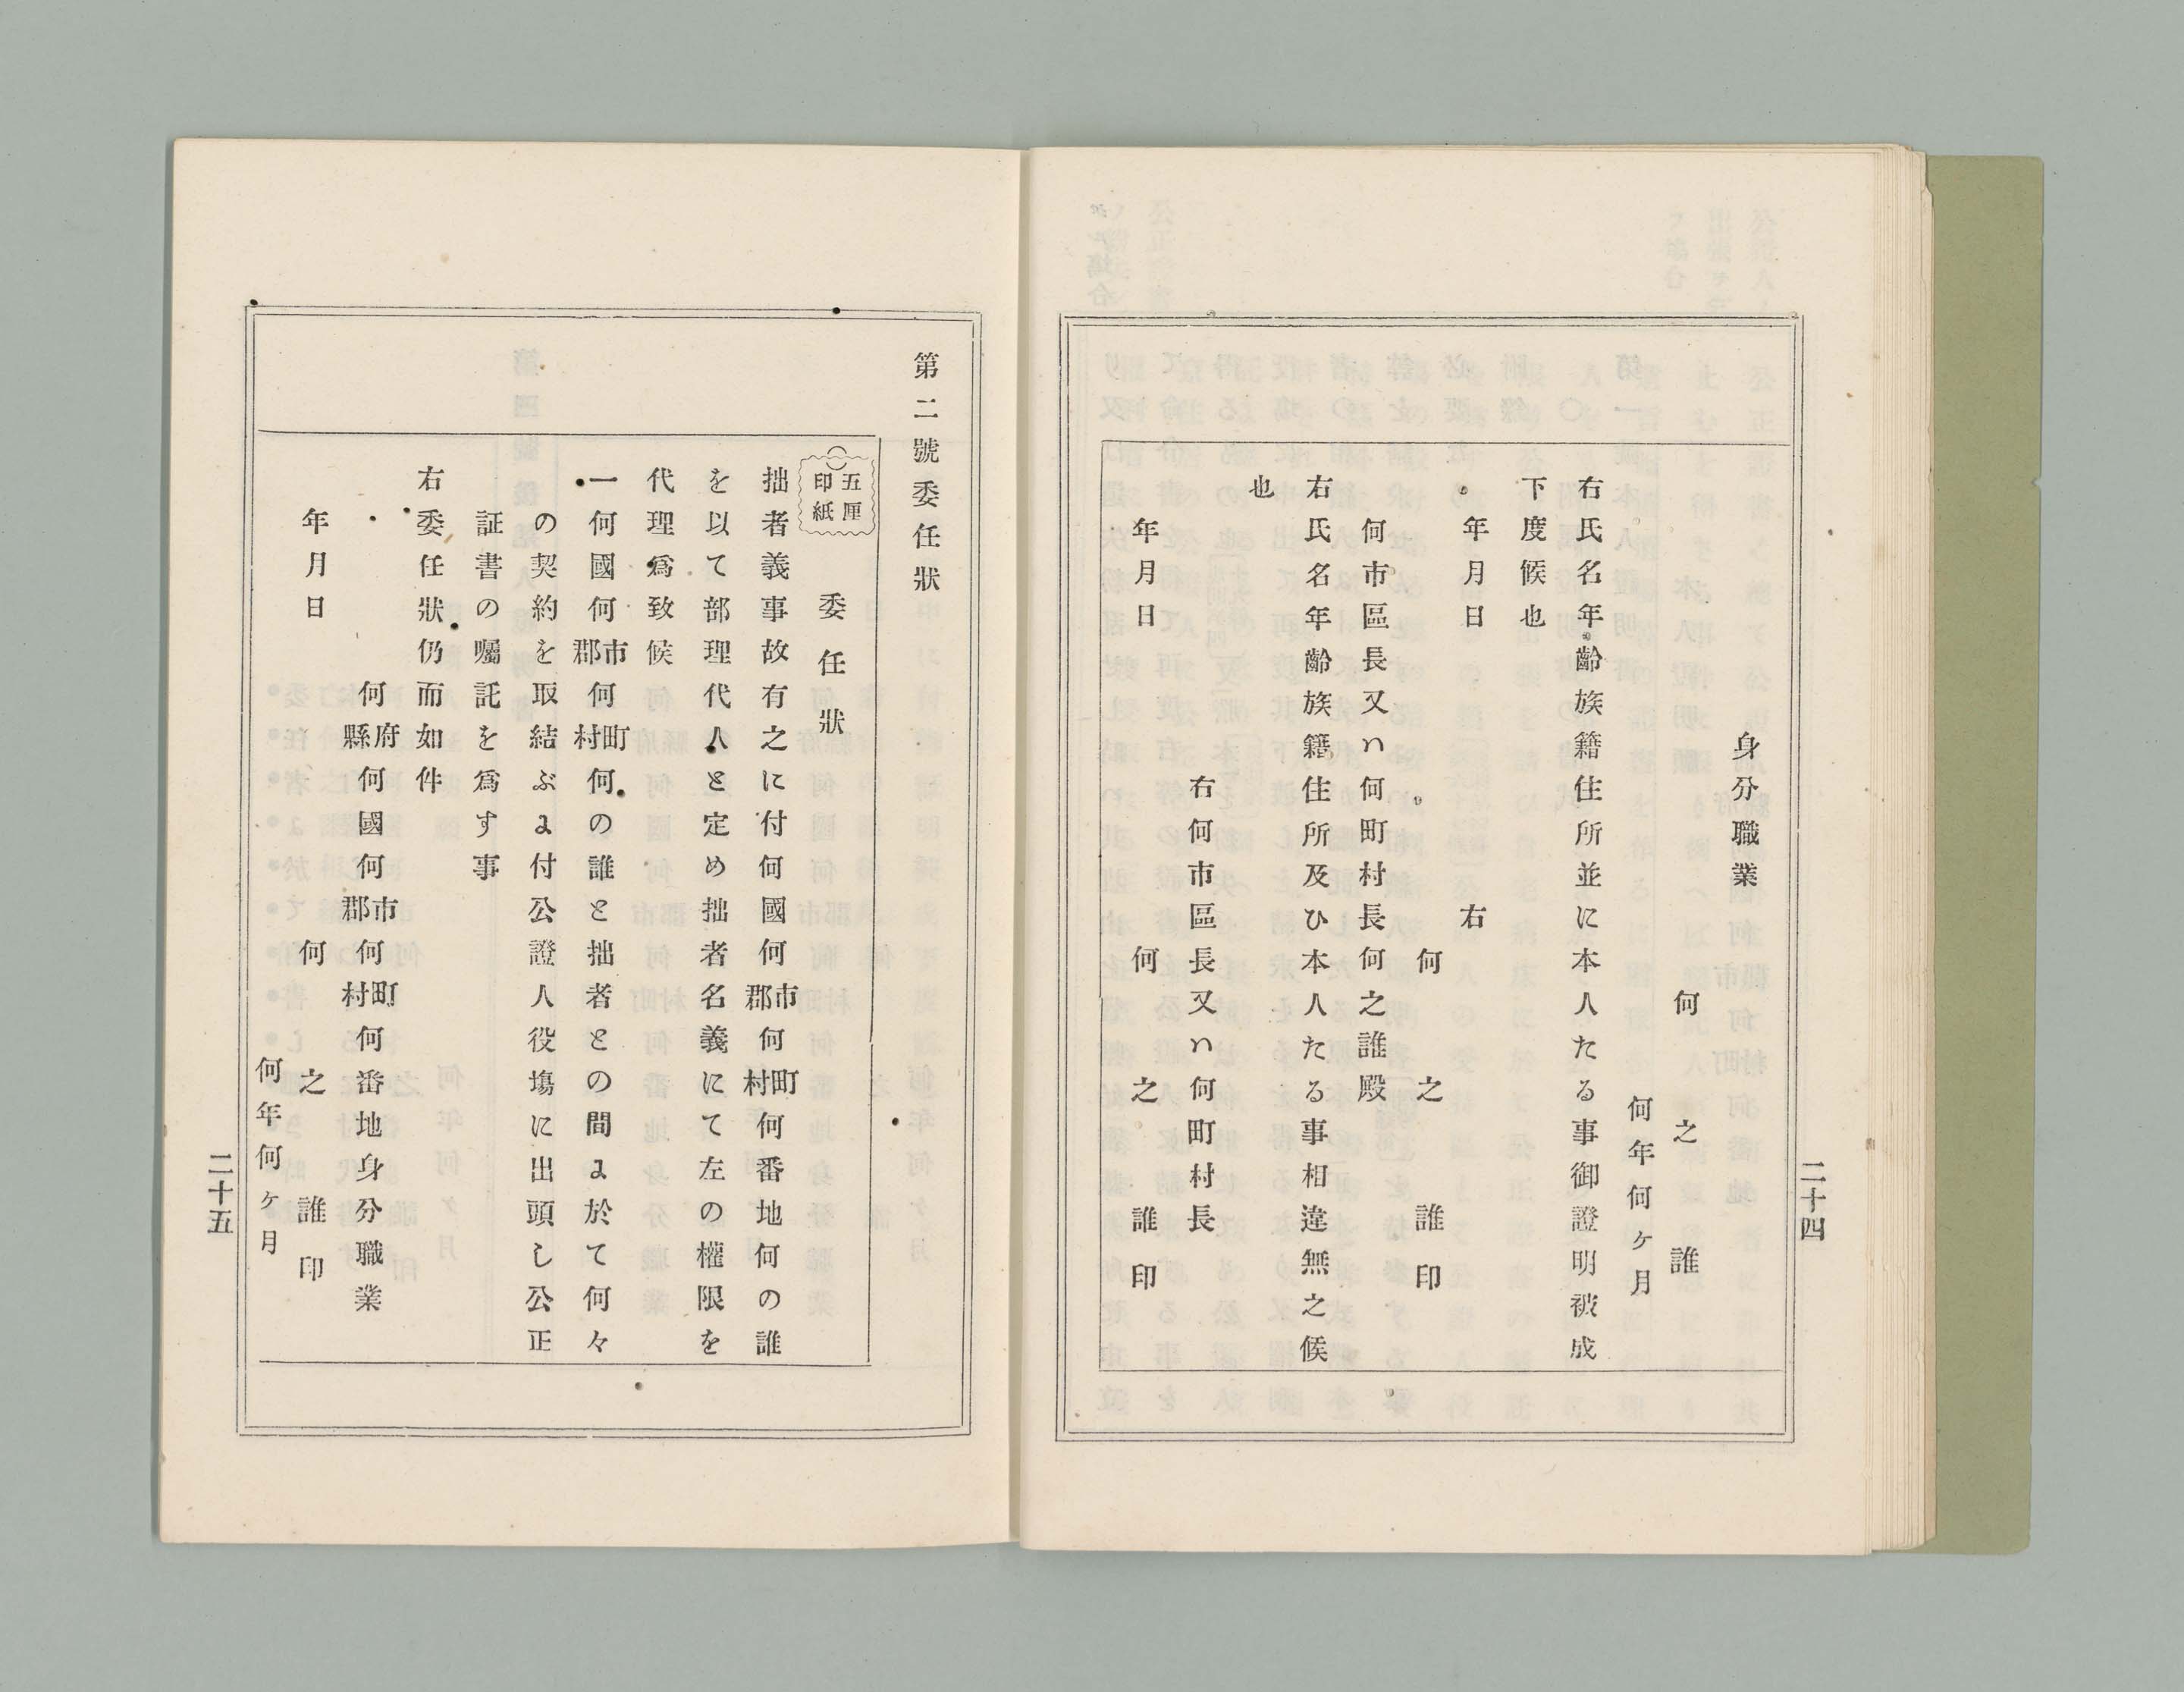 身分職業
何之誰
何年何ヶ月
右氏名年齡族籍住所並に本人たる事御證明被成
下度候也
年月日 右
何之誰印
何市區長又ハ何町村長何之誰殿
右氏名年齡族籍住所及ひ本人たる事相違無之候
也
右何市區長又ハ何町村長
年月日 何之誰印
二十四
第二號委任狀
五厘
印紙
委任狀
拙者義事故有之に付何國何市郡何町村何番地何の誰
を以て部理代人と定め拙者名義にて左の權限を
代理爲致候
一何國何市郡何町村何の誰と拙者との間に於て何々
の契約を取結ぶに付公證人役塲に出頭し公正
証書の囑託を爲す事
右委任狀仍而如件
何府縣何國何市郡何町村何番地身分職業
年月日 何之誰印
何年何ヶ月
二十五